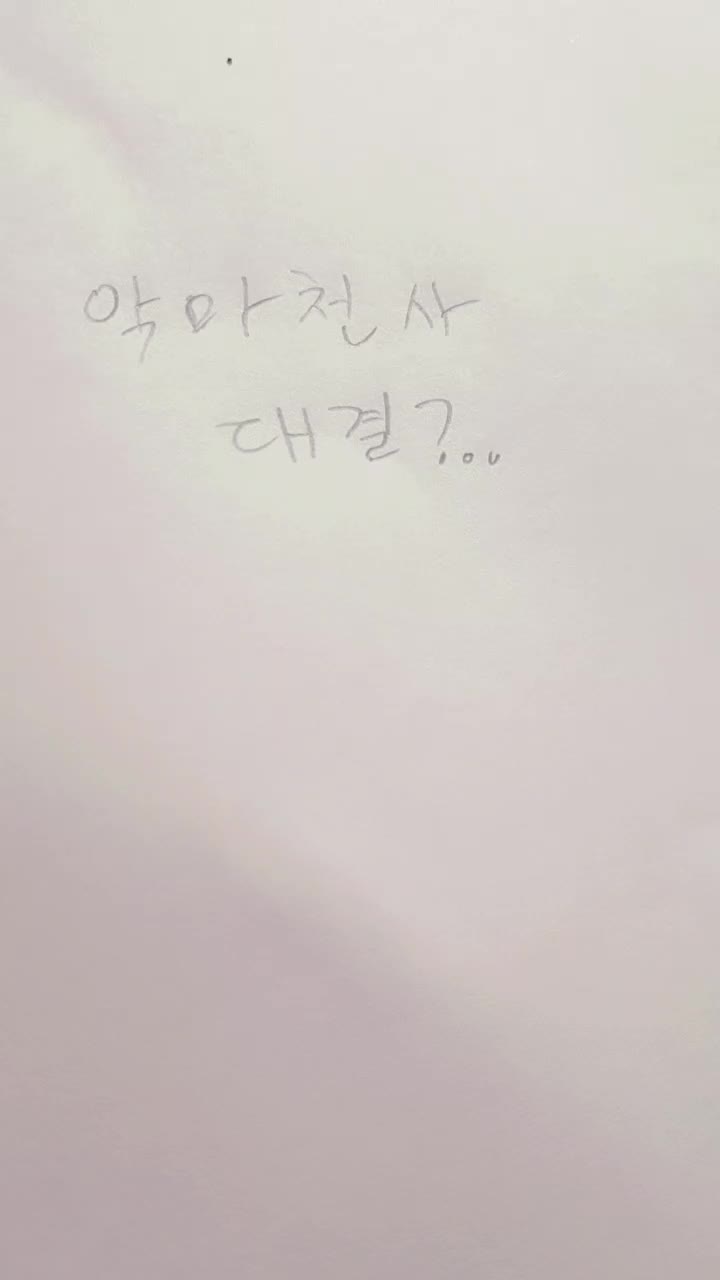 악마천사
대결?..